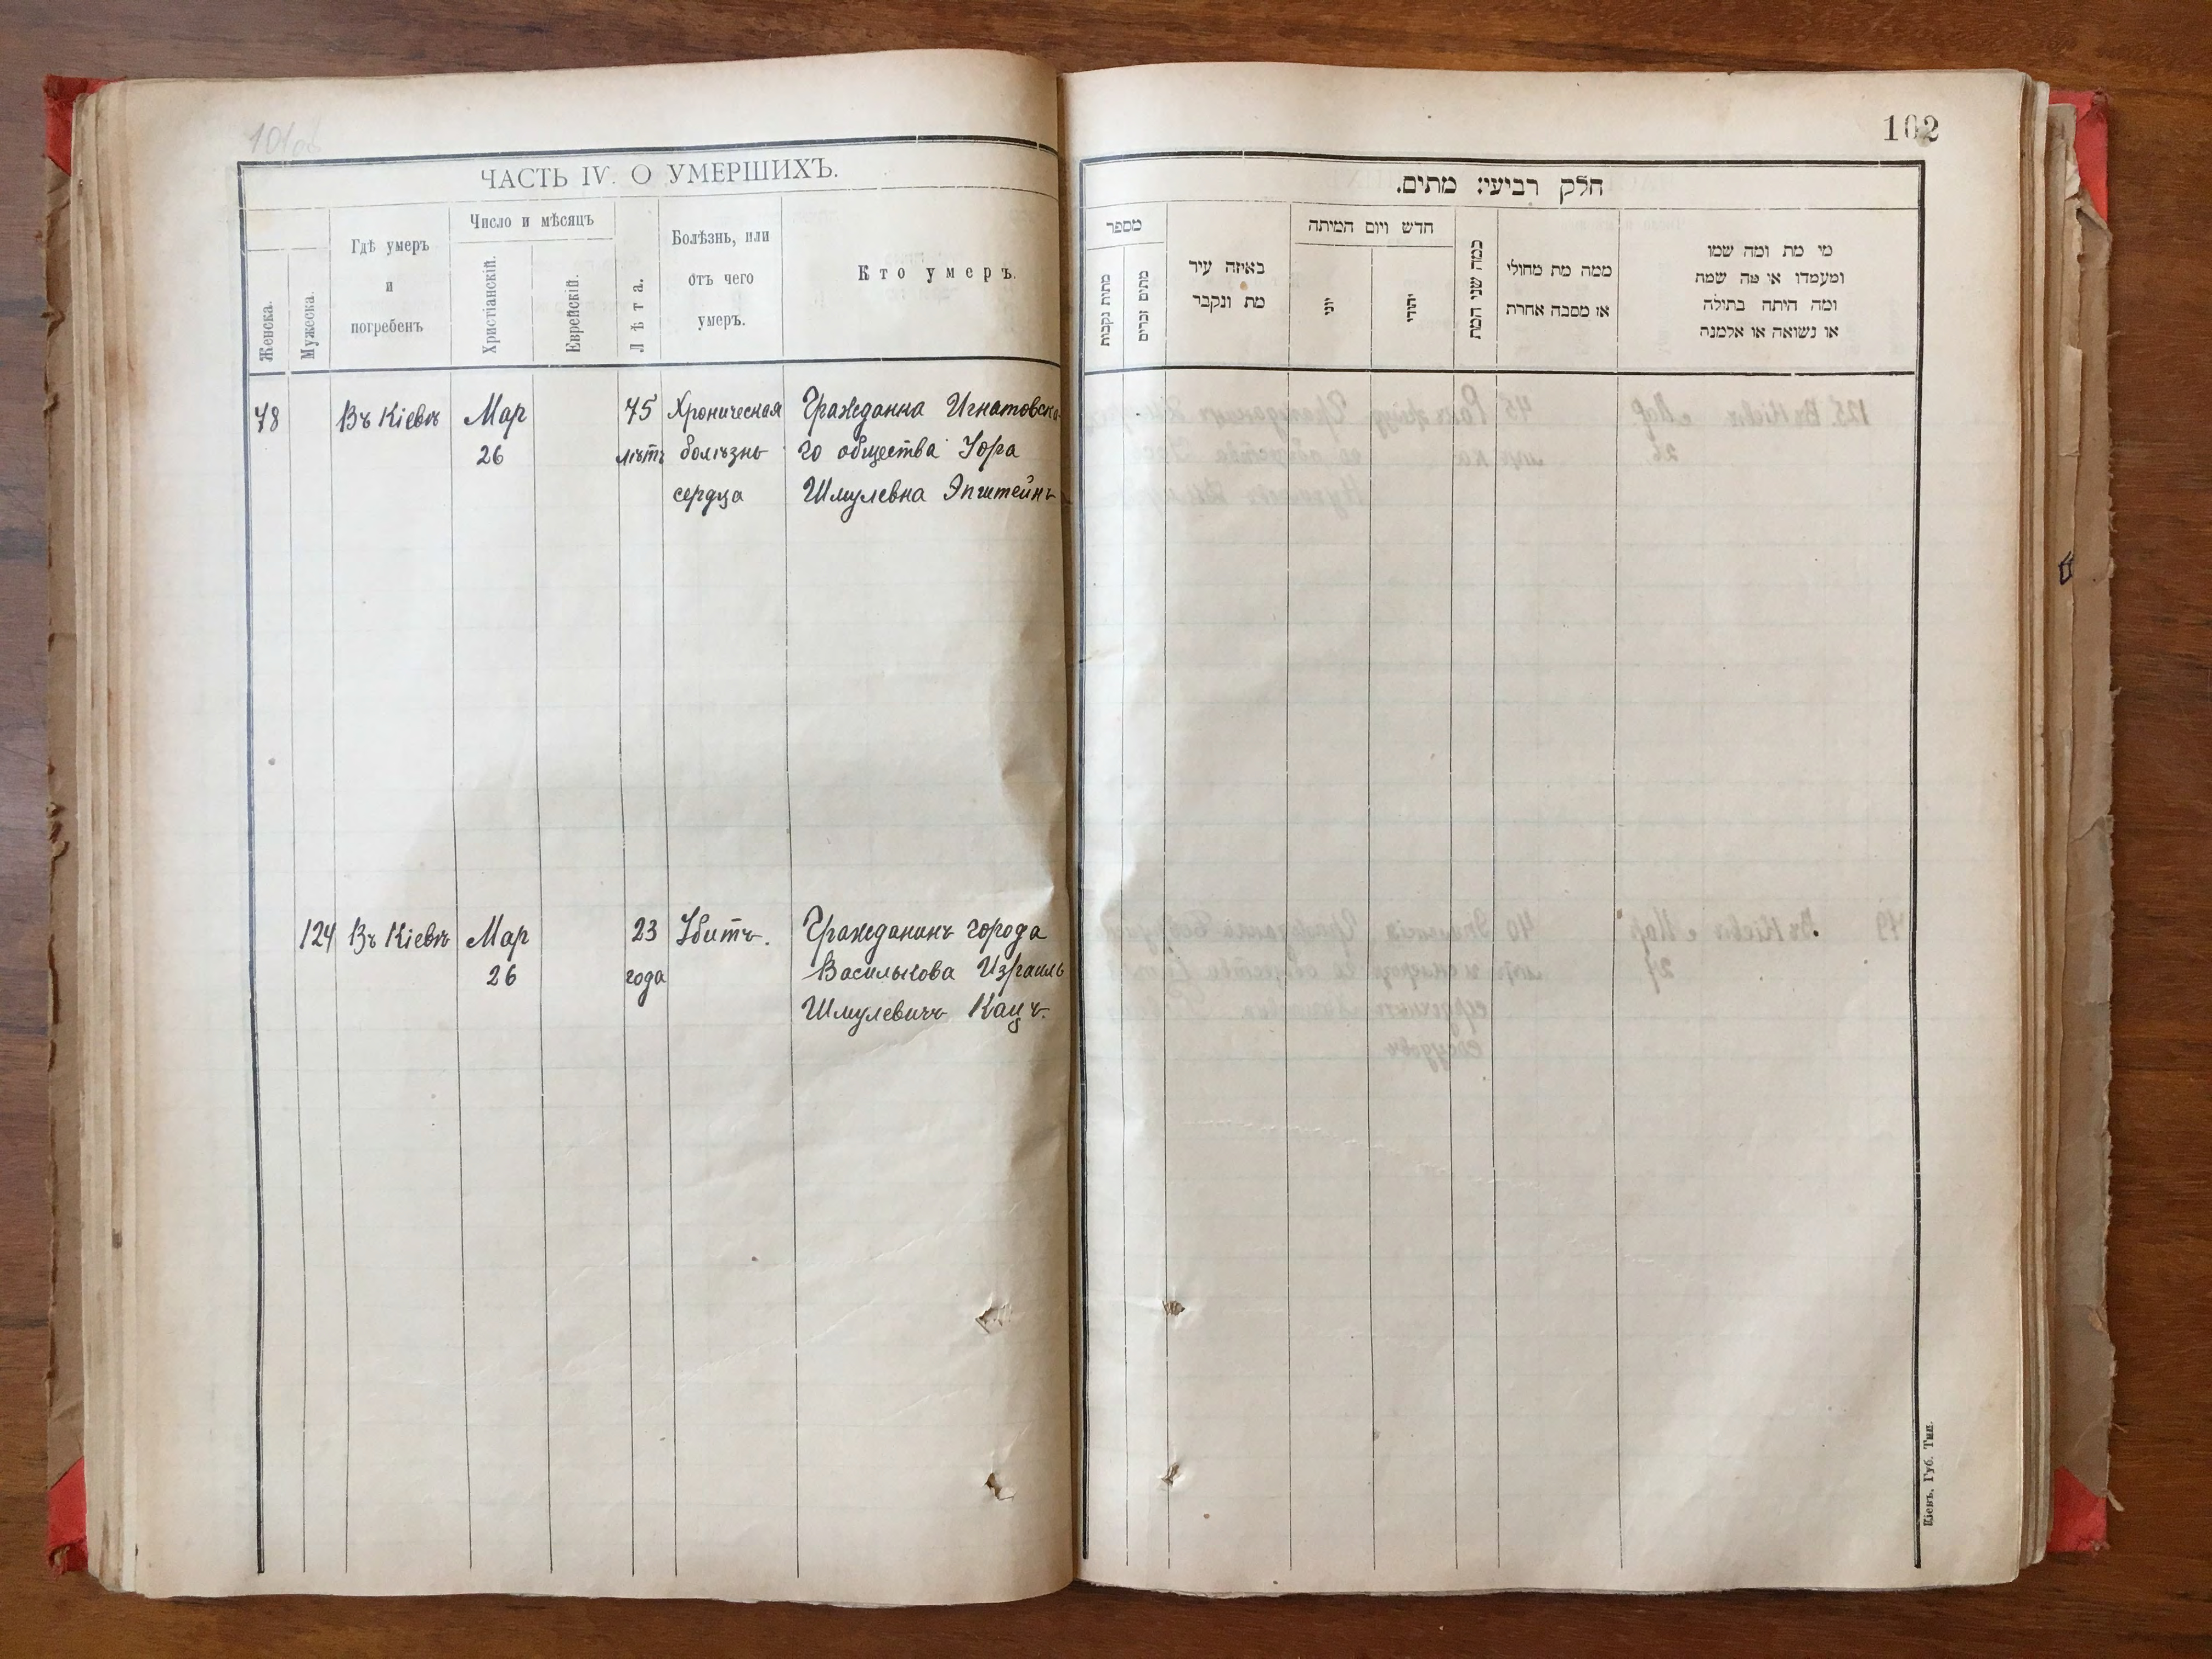 101об
ЧАСТЬ IV. О УМЕРШИХЪ.
Женска.
Мужеска.
Гдѣ умеръ
и
погребенъ
Число и мѣсяцъ
Христіанскій.
Еврейскій.
Лѣта.
Болѣзнь, или
отъ чего
умеръ.
Кто умеръ.
78 Въ Кіевѣ Мар 75 Хроническая Гражданка Игнатовска-
26 лѣтъ болѣзнь го общества
сердца Шмулевна Эпштейнъ
124 Въ Кіевѣ Мар 23 Убитъ. Гражданинъ города
26 года Василькова Израиль
Шмулевичъ Кацъ.
102
חלק רביעי: מתים.
מספר
מתות נקבות
מתים זכרים
באיזה עיר
מת ונקבר
חדש ויום המיתה
יוני
יהודי
כמה שני המת
ממה מת מחולי
או מסבה אחרת
מי מת ומה שמו
ומעמדו או מה שמת
ומה היתה בתולה
או נשואה או אלמנה
Кіевъ, Губ. Тип.